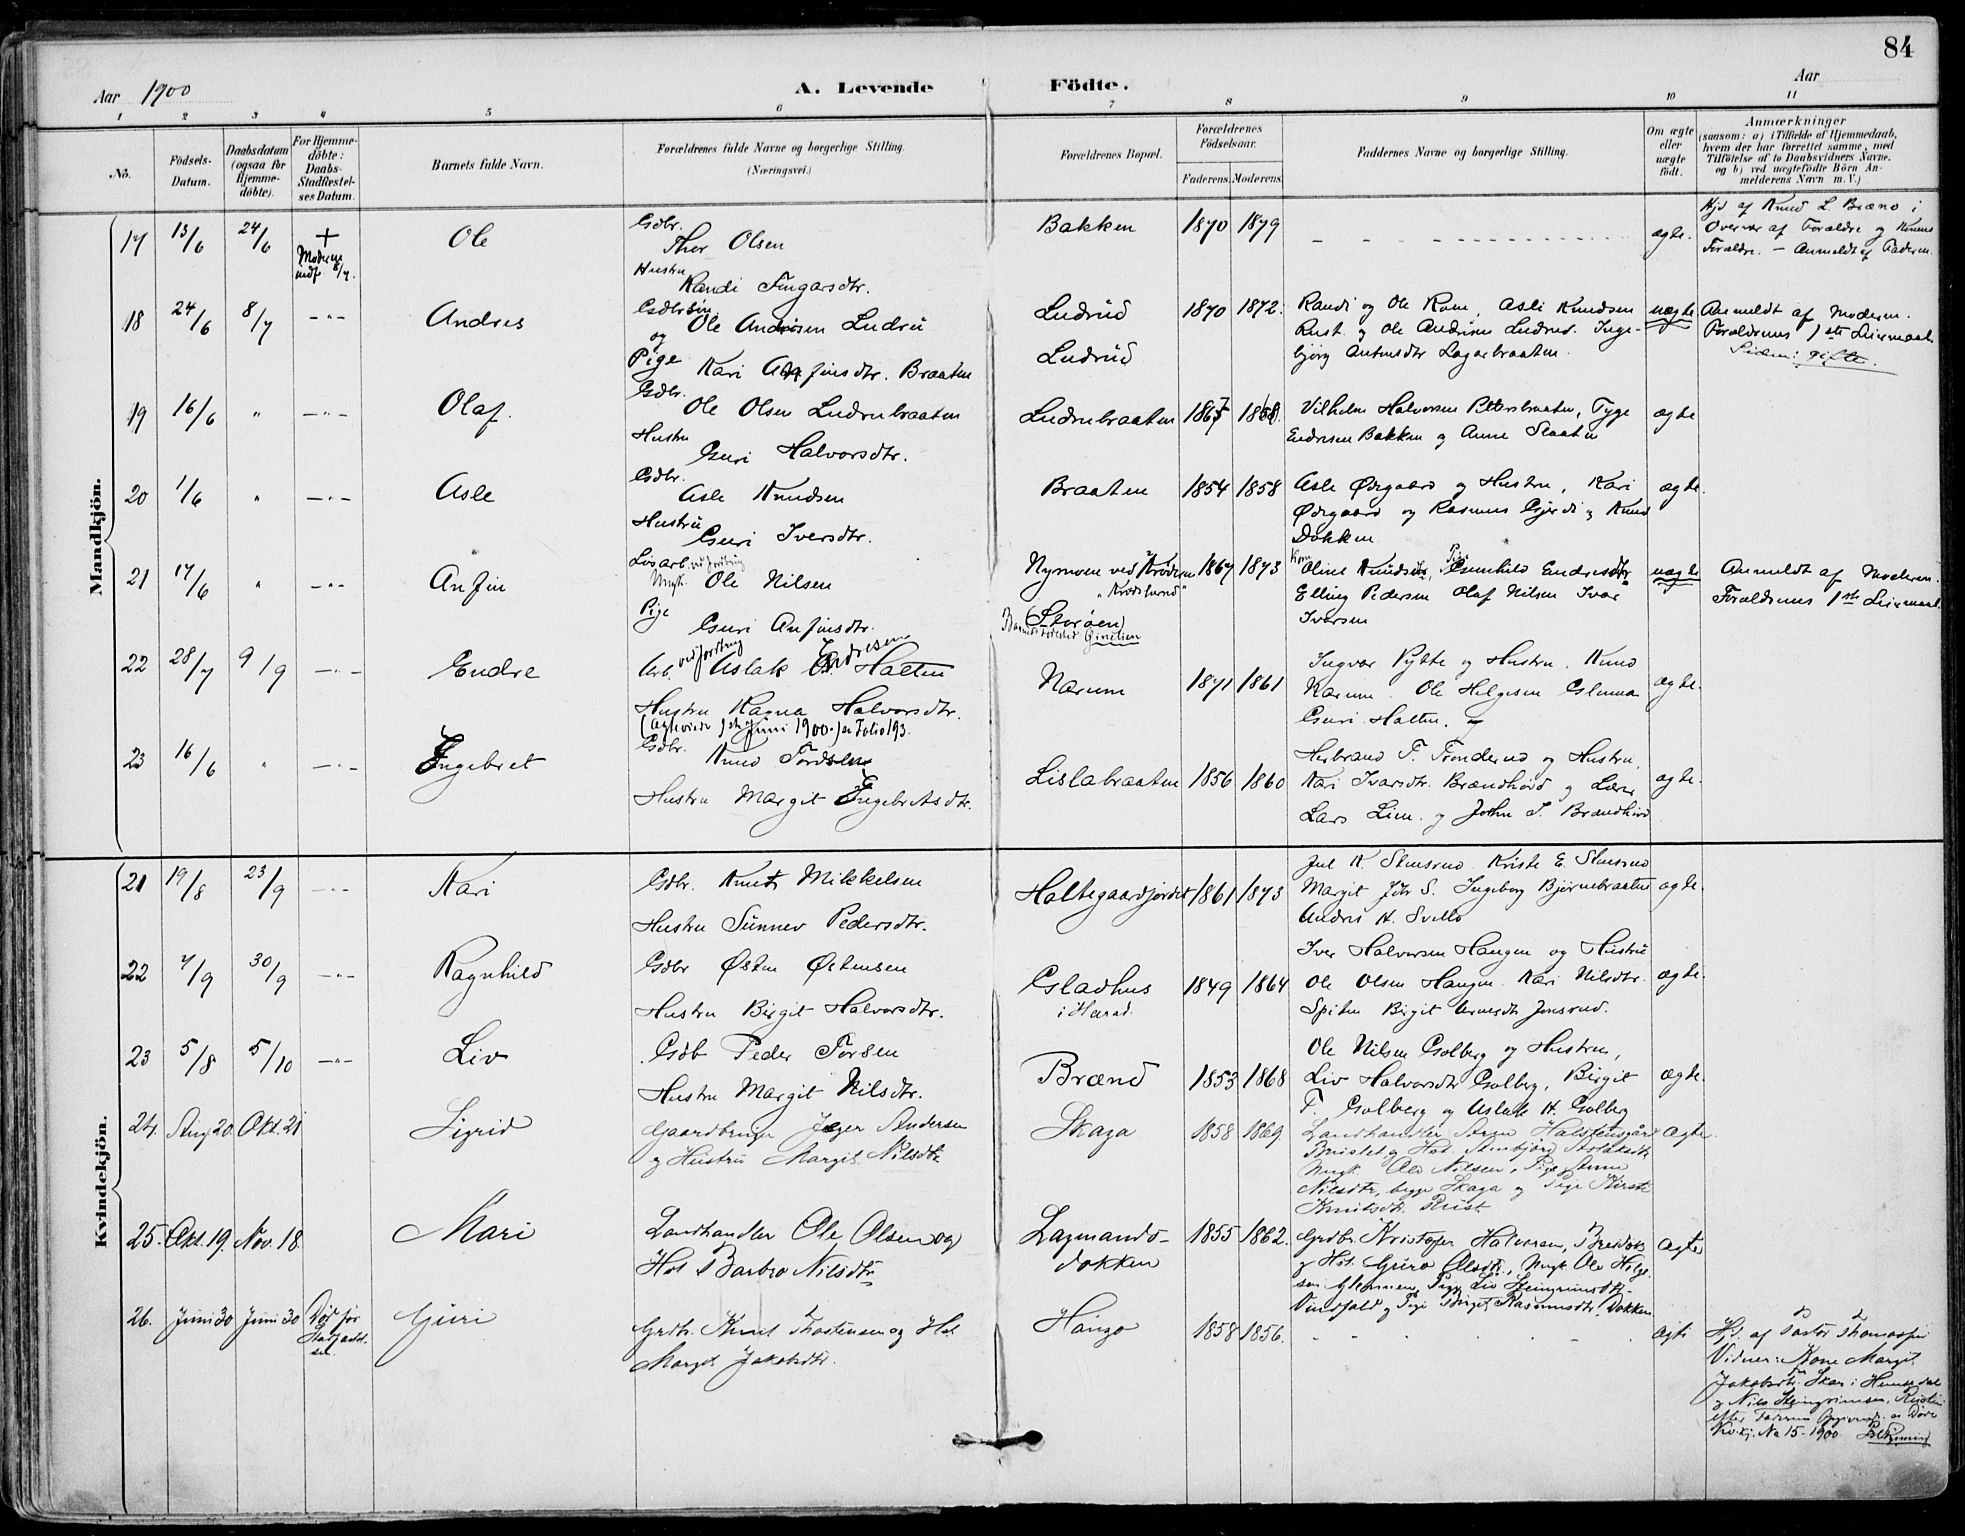 84
Aar 1900
A. Levende Födte.
Aar
1 2 3 4 5 6 7 8 9 10 11
No.
Födsels-Datum.
Daabsdatum (ogsaa för Hjemme-döbte).
For Hjemme-döbte: Daabs-Stadfæstel-ses Datum.
Barnets fulde Navn.
Forældrenes fulde Navne og borgerlige Stilling. (Næringsvei.)
Forældrenes Bopæl.
Forældrenes Födselsaar.
Faderens. Moderens.
Faddernes Navne og borgerlige Stilling.
Om ægte eller uægte födt.
Anmærkninger
(saasom: a) i Tilfælde af Hjemmedaab,
hvem der har forrettet samme, med
Tilföielse af to Daabsvidners Navne,
og b) ved uægtefödte Börn An-
melderens Navn m. V.)
Mandkjön.
17 13/6 24/6 + Ole
Gdbr. Thor Olsen
Hustru Randi Fingarsdtr.
Bakken 1870 1879 ægte.
Hjd af Knud L. Brænd i
Overvær af Forældre og Konens
Forældre. – Anmeldt af Faderen.
18 24/6 8/7 – " – Andres
Gdbrsön Ole Andrisen Ludru
og
Pige Kari Anfinsdtr. Braaten
Ludrud
Ludrud
1870 1872.
Randi og Ole Rom, Asle Knudsen
Rust og Ole Andrisen Ludrud. Inge-
bjørg Antonsdtr Lagarbraaten.
uægte
Anmeldt af Moderen.
Forældrenes 1ste Leiermaal.
Siden: gifte.
19 16/6 " – " – Olaf.
Gdbr. Ole Olsen Ludrubraaten
Hustru Guri Halvorsdtr.
Ludrubraaten 1867 1858
Vilhelm Halvorsen Pettersbraaten, Tyge
Endresen Bakken og Anne Slaaten
ægte
20 1/6 " – " – Asle
Gdbr. Asle Knudsen
Hustru Guri Iversdtr.
Braaten 1854 1858
Asle Ødegaard og Hustru, Kari
Ødegaard og Rasmus Gjerdi og Knud
Dokken
ægte.
21 17/6 " – " – Anfin
Løsarb. ved Jordbrug
Ungk. Ole Nilsen
Pige Guri Anfinsdtr.
Nymoen ved Krøderen
"Krødsherred"
(Storøen)
1867 1873
Kone Oline Knudsdtr, Pige Gunhild Endresdtr
Elling Pedersen Olaf Nilsen Ivar
Iversen
uægte
Anmeldt af Moderen.
Forældrenes 1ste Leiermaal.
22 28/7 9/9 – " – Endre
Arb. ved Jordbrug Aslak Endresen Halten
Hustru Ragna Halvorsdtr.
Narum 1871 1861
Ingvar Pytte og Hustru, Knud
Narum. Ole Helgesen Glenna
Guri Halten. og
ægte.
23 16/6 " – " – Engebret
Gdbr. Knud Tordsen
Hustru Margit Engebretsdtr.
Lislabraaten 1856 1860
Herbrand T. Trønderud og Hustru,
Kari Ivarsdtr. Brændhovd og Lærer
Lars Liem. og John T. Brændhovd
ægte.
Kvindekjön.
21 19/8 23/9 – " – Kari
Gdbr. Knut Mikkelsen
Hustru Sünnev Pedersdtr.
Haltegaardjordet 1861 1873
Jul K. Stensrud Kristi E. Stensrud
Margit Joh S. Ingeborg Bjørnebraaten
Andris H. Svello
ægte.
22 7/9 30/9 – " – Ragnhild
Gdbr Østen Østensen
Hustru Birgit Halvorsdtr.
Gladhus
i Herad.
1849 1864
Iver Halvorsen Haugen og Hustru
Ole Olsen Haugen Kari Nilsdtr.
Spiten Birgit Arnesdtr Jonsrud.
ægte.
23 5/8 5/10 – " – Liv
Gdb Peder Torsen
Hustru Margit Nilsdtr.
Brænd 1853 1868
Ole Nilsen Golberg og Hustru,
Liv Halvorsdtr Golberg, Birgit
T. Golberg og Aslak H. Golberg
ægte.
24. Aug 20. Okt. 21 Sigrid
Gaardbruger Jøger Andersen
og Hustru Margit Nilsdtr
Skaga 1858 1869.
Landhandler Arne Halstensgård
Bruslet og Hst. Steinbjørg Aslaksdtr
Ungk. Ole Nilsen, Pige Anne
Nilsdtr, begge Skaga og Pige Kirsti
Knutsdtr. Rust.
Ægte.
25. Okt. 19. Nov. 18. Mari
Landhandler Ole Olsen og
Hst Barbro Nilsdtr
Lagmands-
dokken
1855 1862.
Grdbr. Kristofer Halvorsen, Breidoks
og Hst. Guro Olsdtr, Ungk Ole Helge-
sen Glennen, Pige Liv Steingrimsdtr.
Vindfald og Pige Birgit Rasmusdtr. Dokken
Ægte
26. Juni 30 Juni 30
Död før
Stadfæstel-
sen
Guri
Grdbr. Knut Thostensen og Hst
Margit Jakobsdtr.
Haugo 1858 1856.
Ægte
Hjd. af Pastor Thomassen
Vidner: Kone Margit
Jakobsdtr. Skar i Hemsedal
og Nils Steingrimsen,
efter Faderens Opgivende. cfr Döde
Kv.kj. No 15 - 1900